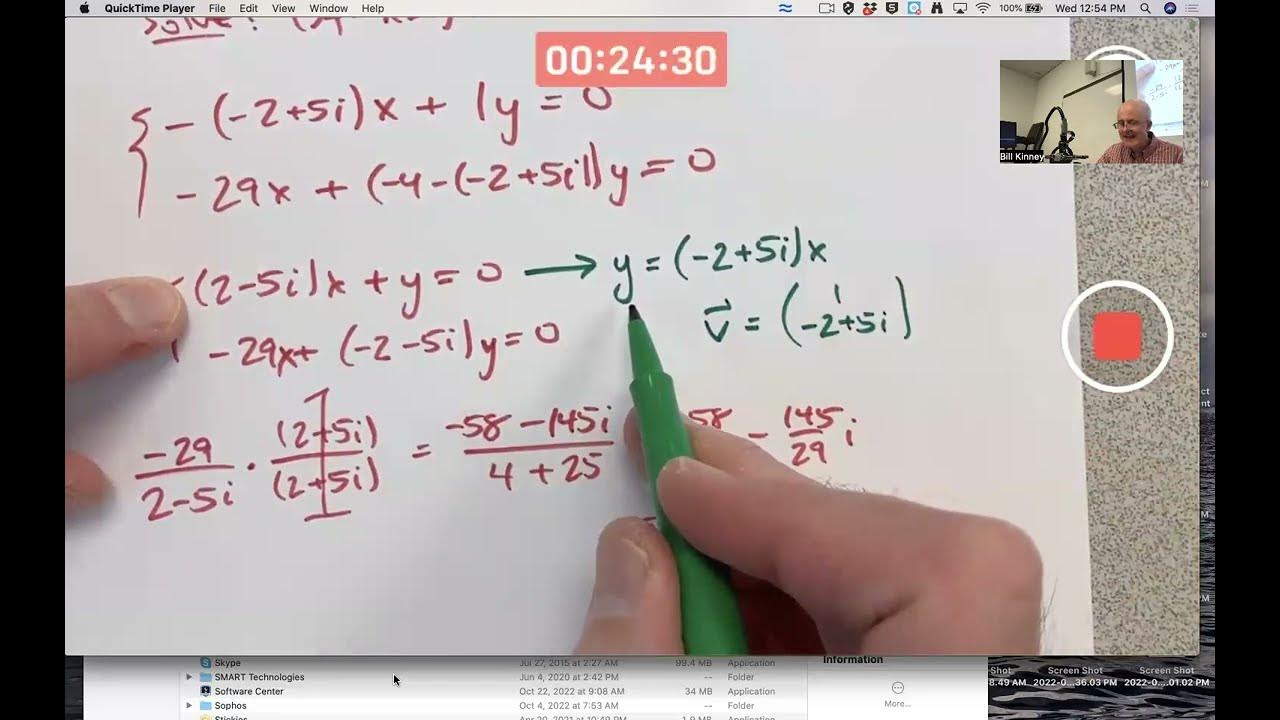 QuickTime Player File Edit View Window Help 100% Wed 12:54 PM
SOLVE:
00:24:30
- (-2+5i)x + 1y = 0
Bill Kinney
- 29x + (-4-(-2+5i))y = 0
(2-5i)x + y = 0 → y = (-2+5i)x
v⃗ = (1
-2+5i)
- 29x + (-2-5i)y = 0
-29/2-5i · (2+5i)/(2+5i) = -58-145i/4+25 58 - 145/29 i
Skype Jul 27, 2015 at 2:27 AM 99.4 MB Application
SMART Technologies Jun 4, 2020 at 2:42 PM -- Folder
Software Center Oct 22, 2022 at 9:08 AM 34 MB Application
Sophos Oct 4, 2022 at 7:53 AM -- Folder
Stickies Apr 20, 2021 at 10:49 PM 1.9 MB Application
Information
More...
Shot Screen Shot Screen Shot
8.49 AM 2022-0...36.03 PM 2022-0....01.02 PM